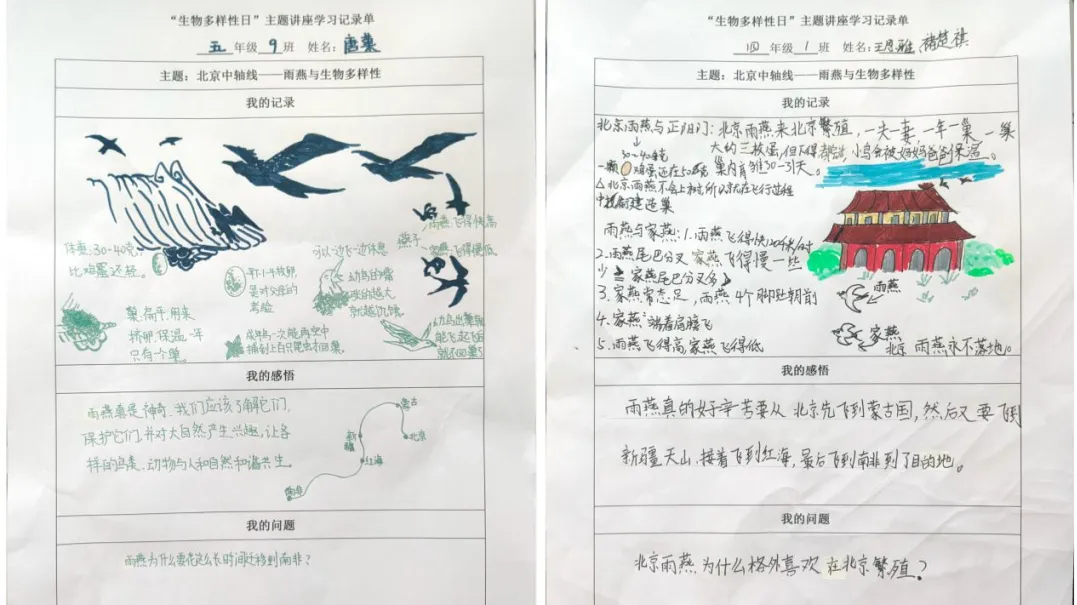 “生物多样性日”主题讲座学习记录单
五 年级 9 班 姓名：唐菓
主题：北京中轴线——雨燕与生物多样性
我的记录
体重：30-40克，
比鸡蛋还轻。
可以一边飞一边休息
燕子
雨燕：飞得快高
飞得慢低
是对父母的
考验
幼鸟的嘴
张的越大
就越饥饿
巢：扁平，用来
孵卵、保温，一年
只有一个巢。
成年鸟一次能再空中
捕到上百只昆虫才回巢。
能飞起飞后
就不回巢了
我的感悟
雨燕真是神奇，我们应该了解它们，
保护它们，并对大自然产生兴趣，让各
样的鸟类、动物与人和自然和谐共生。
蒙古
北京
新疆
红海
南非
我的问题
雨燕为什么要花这么长时间迁移到南非？
“生物多样性日”主题讲座学习记录单
四 年级 1 班 姓名：王思雅 褚楚祺
主题：北京中轴线——雨燕与生物多样性
我的记录
北京雨燕与正阳门：北京雨燕来北京繁殖，一夫一妻，一年一巢，一巢
大约三枚蛋，小鸟会被妈妈爸爸保温。
30-40克
一颗鸡蛋还在50克 巢内育雏30-31天。
△北京雨燕不会上树，所以就在飞行过程
中 造巢
雨燕与家燕：1.雨燕飞得快120千米/时
家燕飞得慢一些
2.雨燕尾巴分叉
少 家燕尾巴分叉多
3.家燕常态足，雨燕4个脚趾朝前
4.家燕 着肩膀飞
5.雨燕飞得高，家燕飞得低
雨燕
家燕
北京雨燕永不落地。
我的感悟
雨燕真的好辛苦要从北京先飞到蒙古国，然后又要飞到
新疆天山，接着飞到红海，最后飞到南非到了目的地。
我的问题
北京雨燕为什么格外喜欢在北京繁殖？